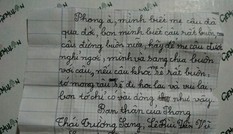 Phong à, mình biết mẹ cậu đã
qua đời, bọn mình biết cậu rất buồn,
cậu đừng buồn nữa, hãy để mẹ cậu được
nghỉ ngơi, mình và Sang chia buồn
với cậu, nếu cậu khóc sẽ rất buồn,
tớ mong cậu sẽ đi học lại và vui lại,
bọn tớ chỉ có vài dòng như vậy.
Bạn thân của Phong
Thái Trường Sang, Lê Văn